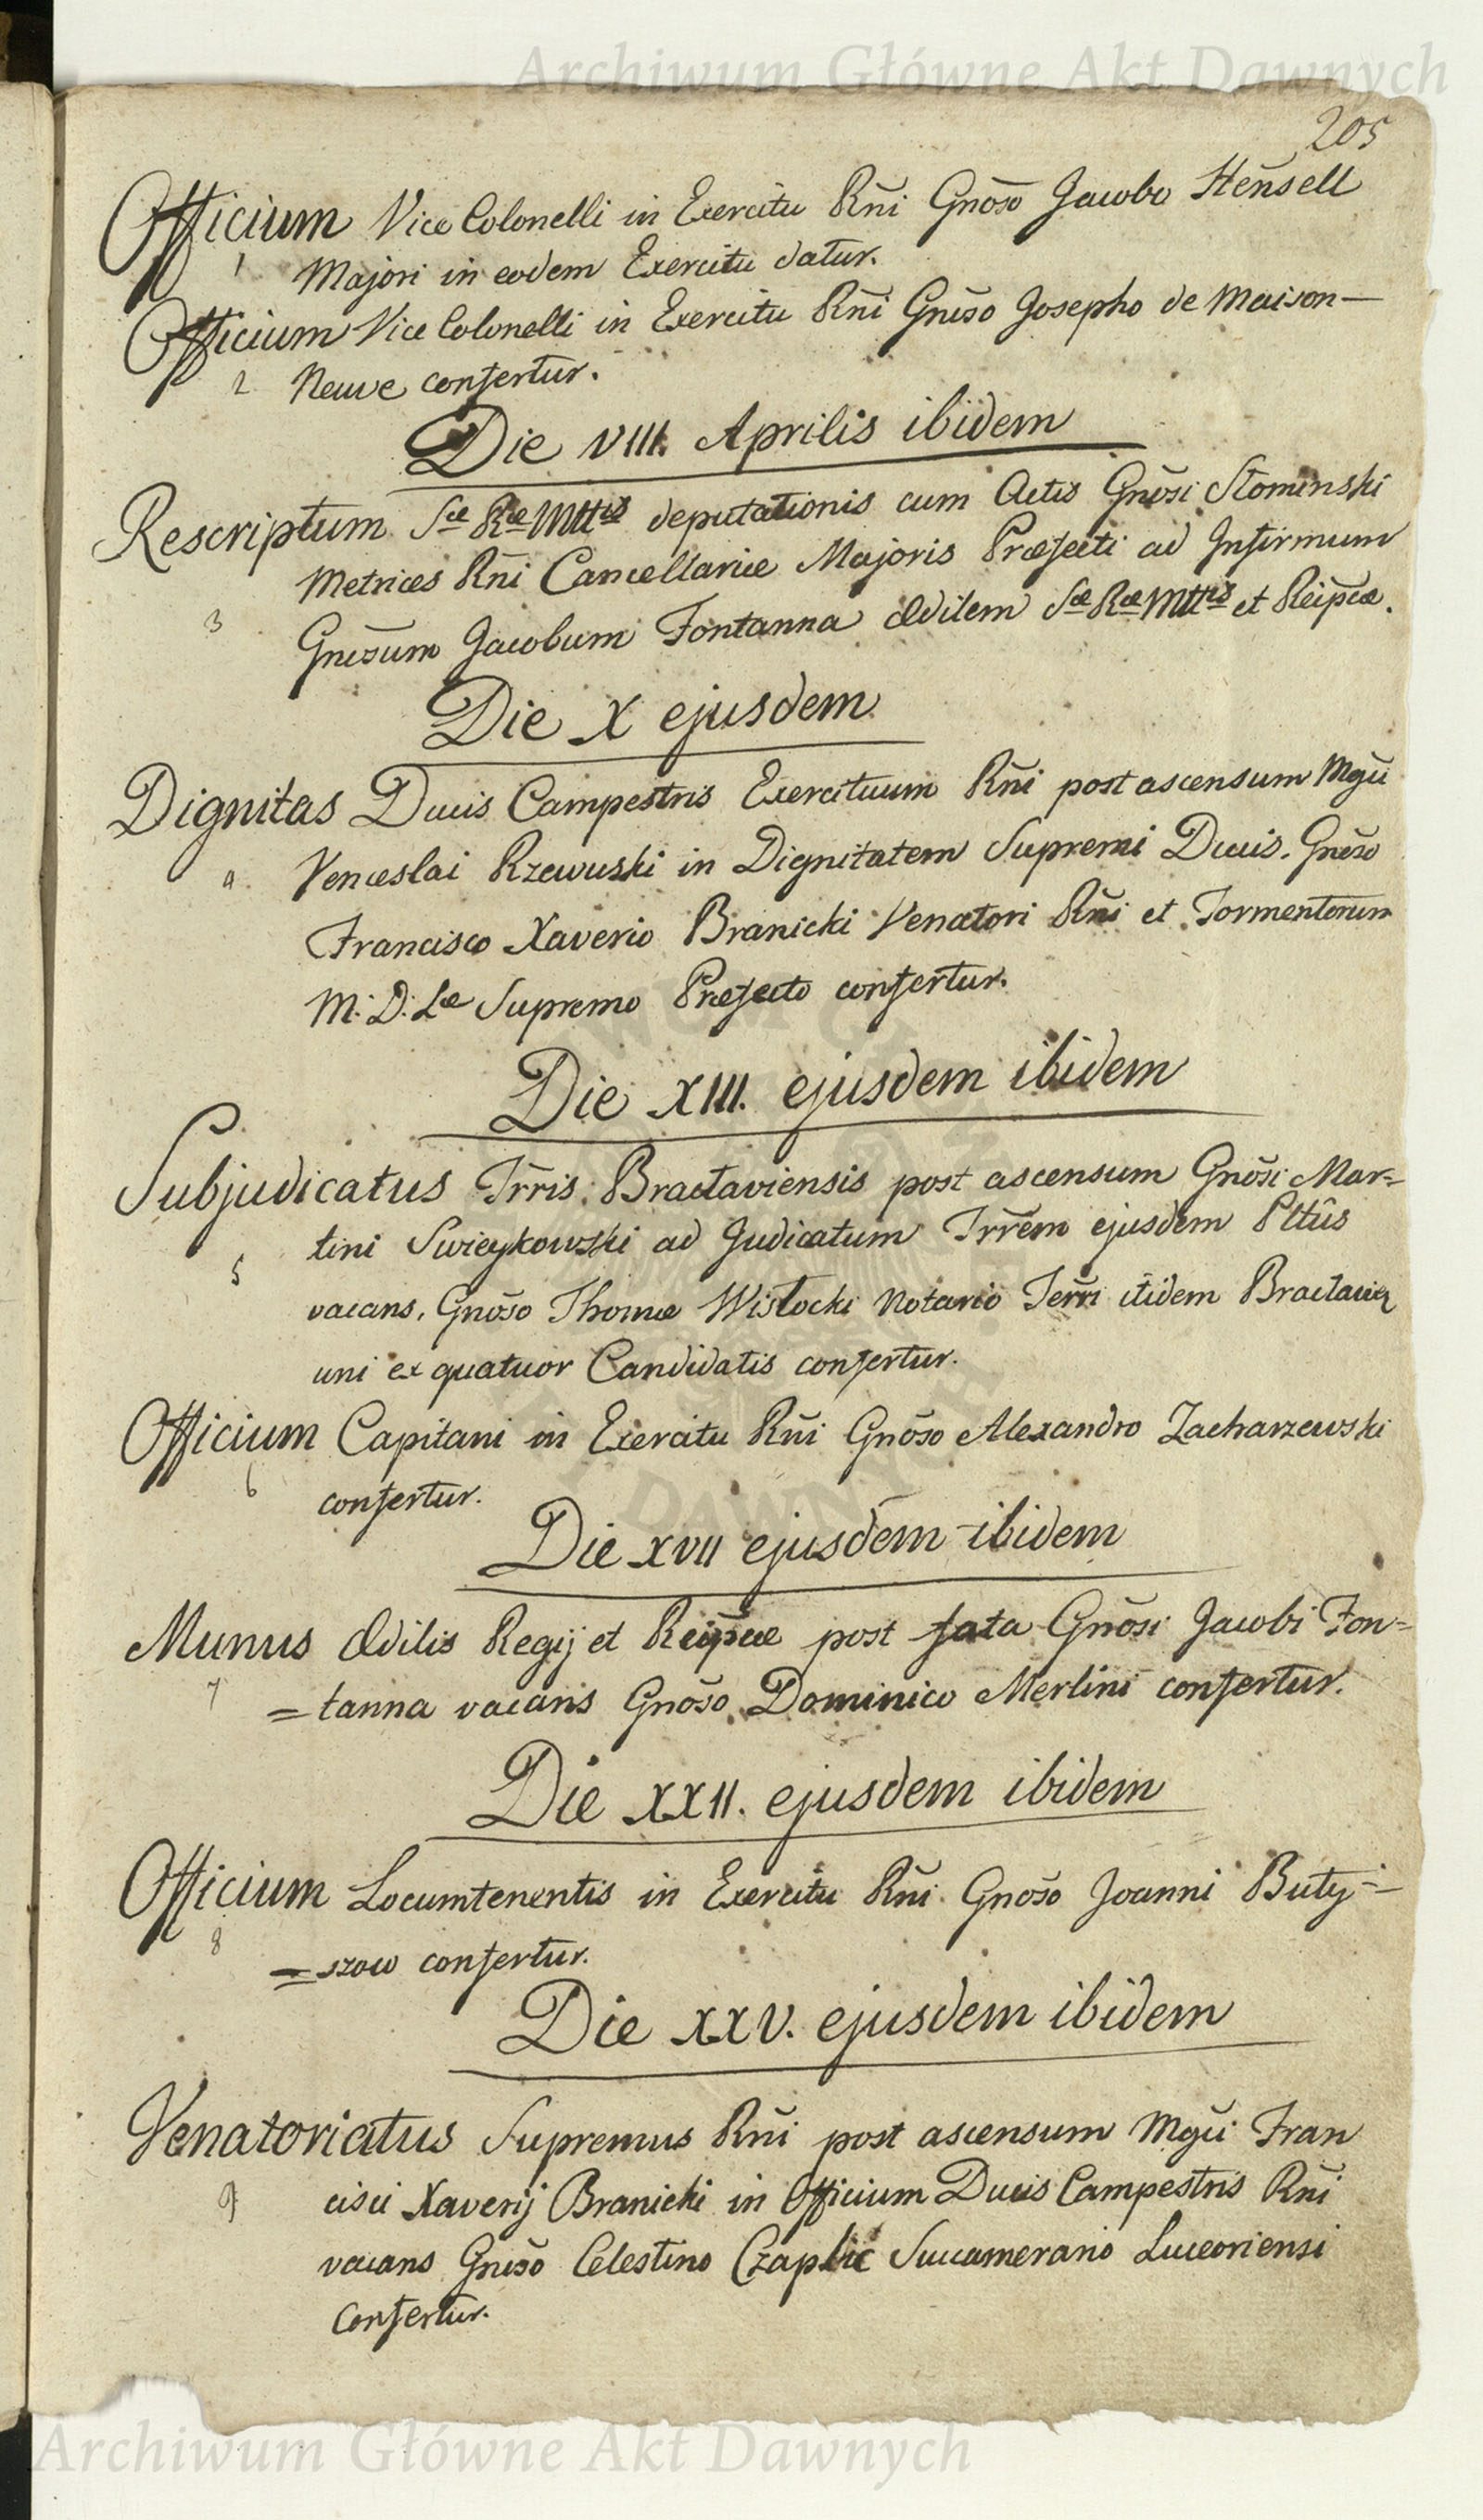 Archiwum Główne Akt Dawnych
205
Officium Vice Colonelli in Exercitu Rñi Gnōso Jacobo Hensell
1 Majori in eodem Exercitu datur.
Officium Vice Colonelli in Exercitu Rñi Gnōso Josepho de Maison-
2 Neuve confertur.
Die VIII. Aprilis ibidem
Rescriptum Sæ Ræ Mttis deputationis cum Actis Gnōsi Słominski
Metrices Rñi Cancellariæ Majoris Præfecti ad Infirmum
3 Gnōsum Jacobum Fontanna Ædilem Sæ Ræ Mttis et Reipcæ.
Die X ejusdem
Dignitas Ducis Campestris Exercituum Rñi post ascensum Mgci
4. Venceslai Rzewuski in Dignitatem Supremi Ducis. Gnōso
Francisco Xaverio Branicki Venatori Rñi et Tormentorum
M: D: Læ Supremo Præfecto confertur.
Die XIII. ejusdem ibidem
Subjudicatus Trris Bractaviensis post ascensum Gnōsi Mar=
tini Swieykowski ad Judicatum Trrem ejusdem Pltûs
5 vacans, Gnōso Thomæ Wisłocki Notario Terri itidem Braclavien
uni ex quatuor Candidatis confertur.
Officium Capitani in Exercitu Rñi Gnōso Alexandro Zacharzewski
6 confertur.
Die XVII ejusdem ibidem
Munus Ædilis Regij et Reipcæ post fata Gnōsi Jacobi Fon=
7 =tanna vacans Gnōso Dominico Merlini confertur.
Die XXII. ejusdem ibidem
Officium Locumtenentis in Exercitu Rñi Gnōso Joanni Buty=
8 =szow confertur.
Die XXV. ejusdem ibidem
Venatoriatus Supremus Rñi post ascensum Mgci Fran
9 cisci Xaverij Branicki in Officium Ducis Campestris Rñi
vacans Gnōso Celestino Czaplic Succamerario Luceoriensi
Confertur.
Archiwum Główne Akt Dawnych